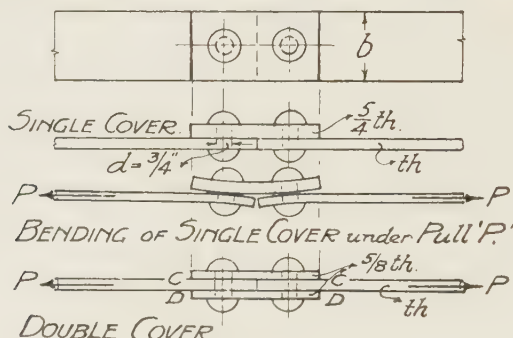 b
SINGLE COVER.
5/4 th.
d = 3/4"
th
P P
BENDING OF SINGLE COVER under PULL 'P.'
5/8 th.
P C C P
D D th
DOUBLE COVER